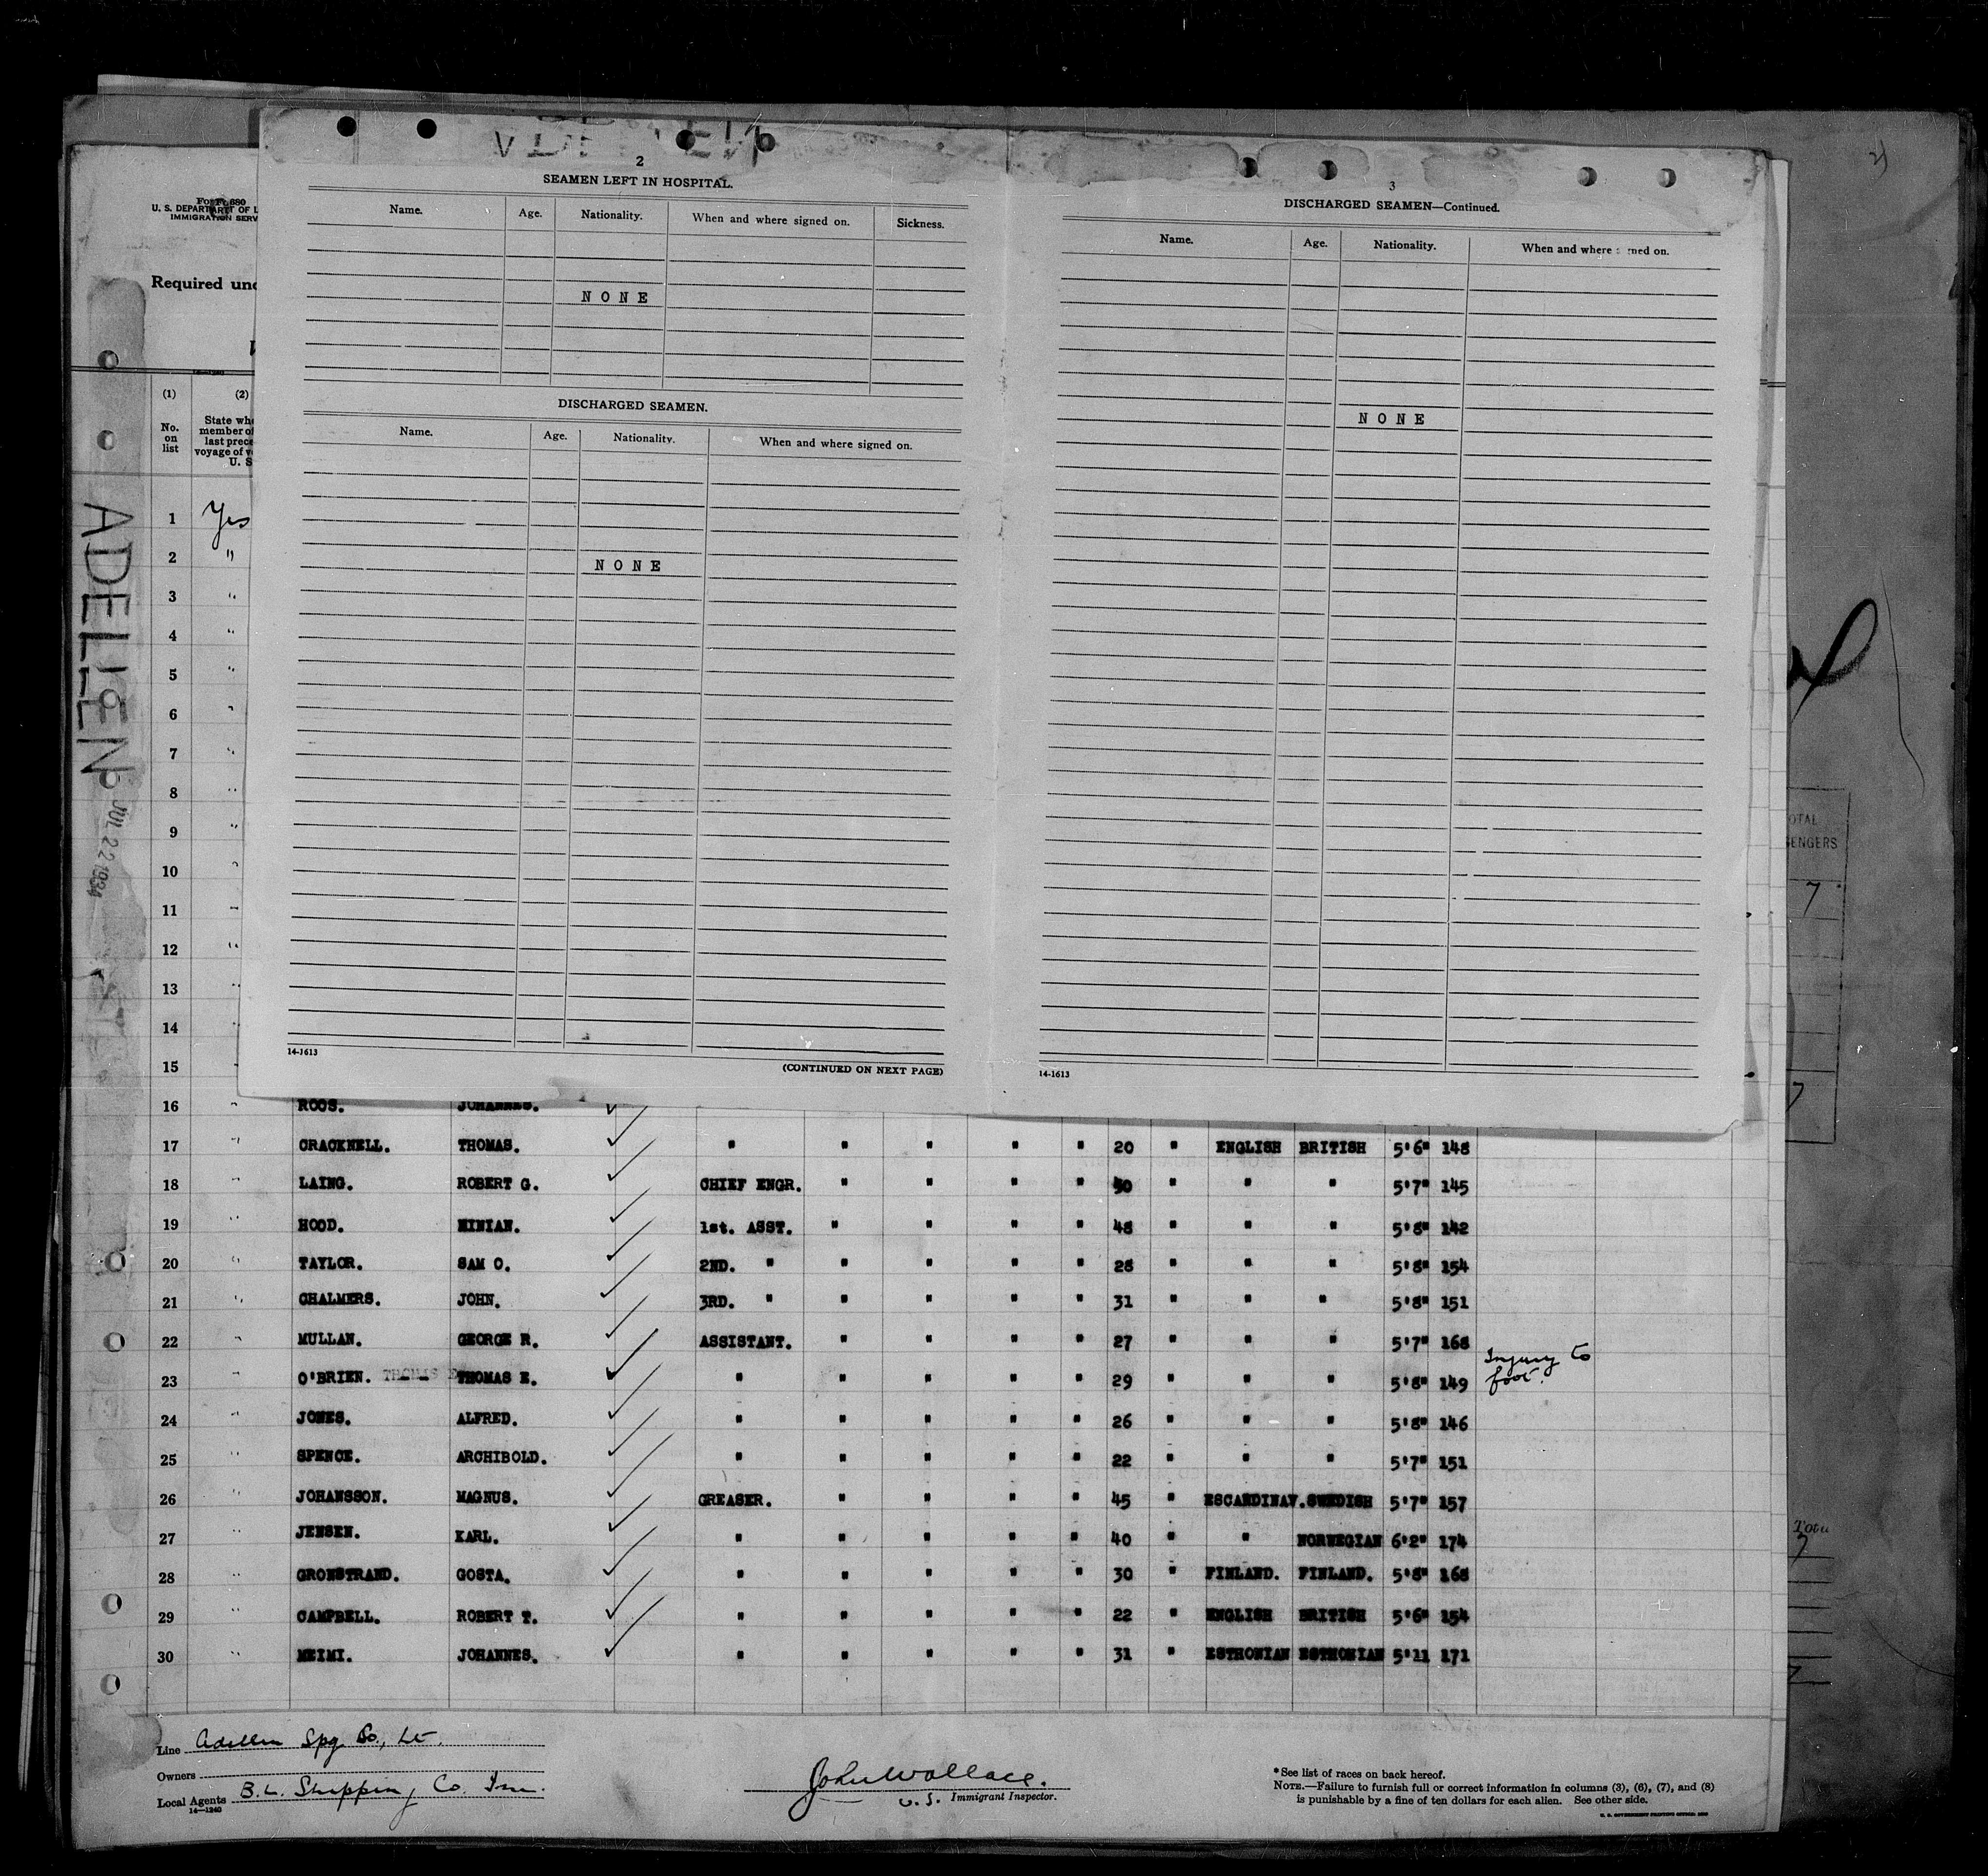 2
SEAMEN LEFT IN HOSPITAL.
Name. Age. Nationality. When and where signed on. Sickness.
NONE
DISCHARGED SEAMEN.
Name. Age. Nationality. When and where signed on.
NONE
14-1613
(CONTINUED ON NEXT PAGE)
3
DISCHARGED SEAMEN—Continued.
Name. Age. Nationality. When and where
NONE
14-1613
U. S. DEPARTMENT OF L
IMMIGRATION SERV
Required und
(1) (2)
No. on list
State whe
member of
last prece
voyage of ve
U. S
ADELLEN
JUL 22 1934
1 Yes
2 "
3 "
4 "
5 "
6 "
7 "
8 "
9 "
10 "
11 "
12 "
13 "
14 "
15
16 " ROOS. JOHANNES.
17 " CRACKNELL. THOMAS. " " " " " 20 " ENGLISH BRITISH 5'6" 148
18 " LAING. ROBERT G. CHIEF ENGR. " " " " 50 " " " 5'7" 145
19 " HOOD. NINIAN. 1st. ASST. " " " " 48 " " " 5'8" 142
20 " TAYLOR. SAM O. 2ND. " " " " " 28 " " " 5'8" 154
21 " CHALMERS. JOHN. 3RD. " " " " " 31 " " " 5'8" 151
22 " MULLAN. GEORGE R. ASSISTANT. " " " " 27 " " " 5'7" 168
23 " O'BRIEN. THOMAS E. " " " " " 29 " " " 5'8" 149 Injury to foot.
24 " JONES. ALFRED. " " " " " 26 " " " 5'8" 146
25 " SPENCE. ARCHIBOLD. " " " " " 22 " " " 5'7" 151
26 " JOHANSSON. MAGNUS. GREASER. " " " " 45 " ESCANDINAV. SWEDISH 5'7" 157
27 " JENSEN. KARL. " " " " " 40 " " NORWEGIAN 6'2" 174
28 " GRONSTRAND. GOSTA. " " " " " 30 " FINLAND. FINLAND. 5'8" 168
29 " CAMPBELL. ROBERT T. " " " " " 22 " ENGLISH BRITISH 5'6" 154
30 " MEIMI. JOHANNES. " " " " " 31 " ESTHONIAN ESTHONIAN 5'11 171
OTAL
ENGERS
7
7
Tota
7
Line Adellen Spg Co., Lt.
Owners
Local Agents B.L. Shipping Co. Inc.
14—1240
John Wallace.
U.S. Immigrant Inspector.
*See list of races on back hereof.
NOTE.—Failure to furnish full or correct information in columns (3), (6), (7), and (8)
is punishable by a fine of ten dollars for each alien. See other side.